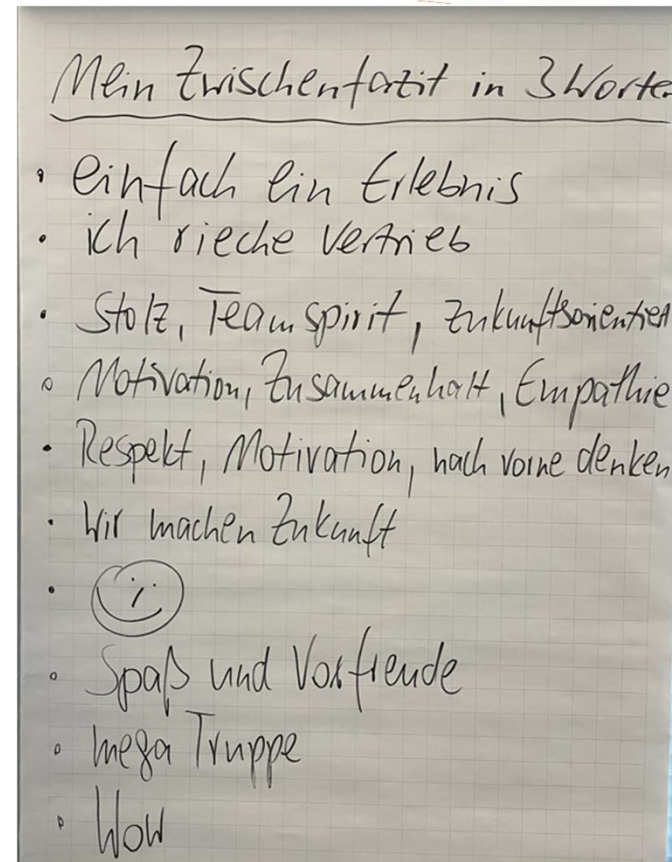 Mein Zwischenfazit in 3 Worte
• einfach ein Erlebnis
• ich rieche Vertrieb
• Stolz, Teamspirit, Zukunftsorientiert
• Motivation, Zusammenhalt, Empathie
• Respekt, Motivation, nach vorne denken
• Wir machen Zukunft
• 
• Spaß und Vorfreude
• mega Truppe
• Wow